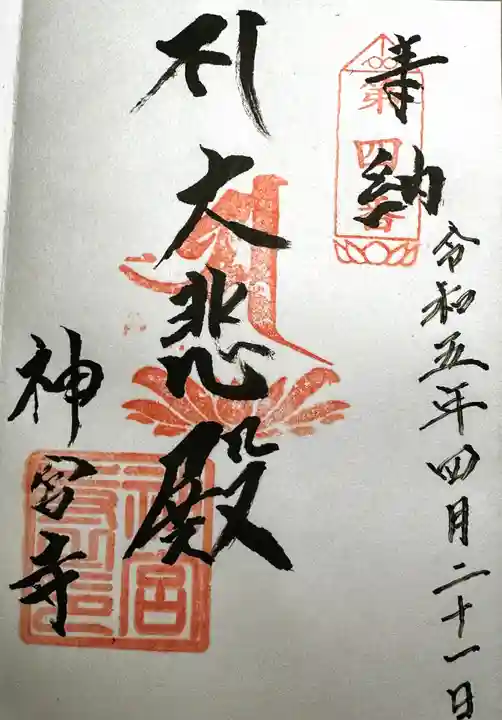 奉納
第四番
令和五年四月二十一日
大悲殿
神宮寺